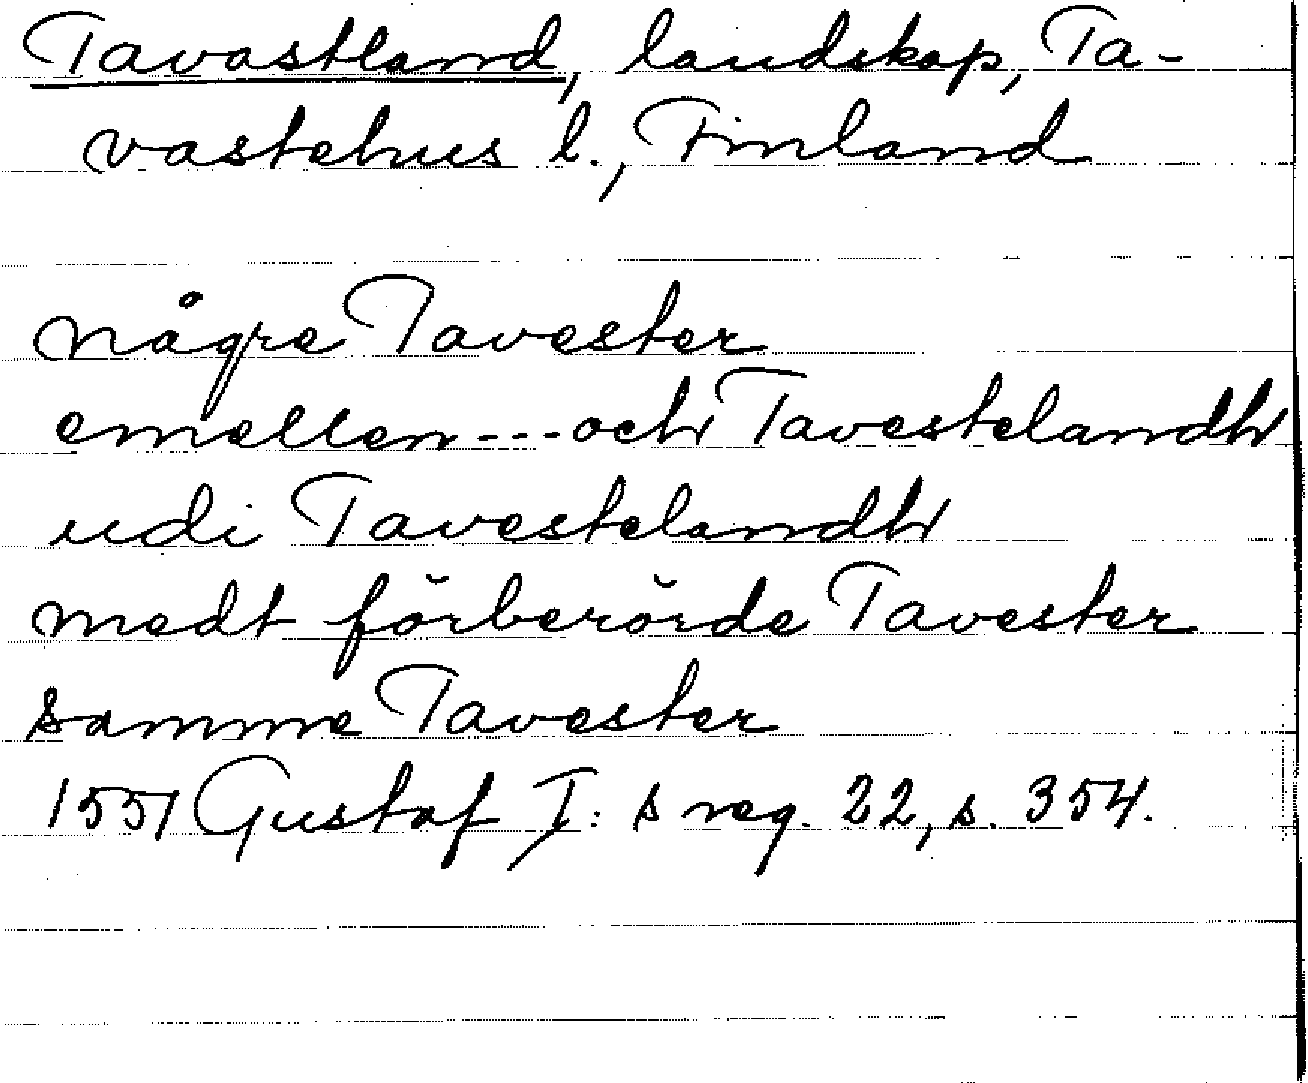 Tavastland, landskap, Ta-
vastehus l., Finland
någre Tavester
emellen --- och Tavestelandh
udi Tavestelandh
medt förberörde Tavester
samme Tavester
1551 Gustaf I:s reg. 22, s. 354.